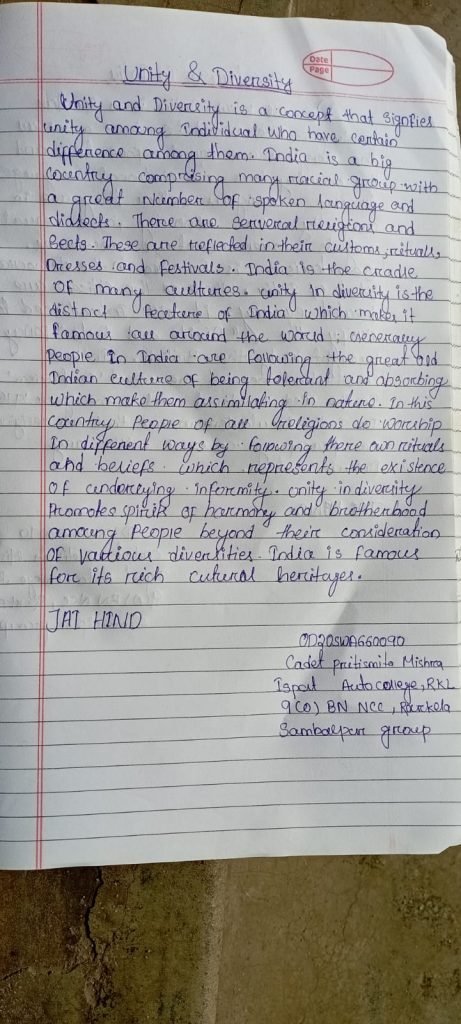 Date
Page
Unity & Diversity
Unity and Diversity is a concept that signfies
unity amoung Individual who have certain
difference among them. India is a big
country comprising many racial group with
a great Number of spoken language and
dialects. There are serveral religions and
Sects. These are reflected in their customs, rituals,
Dresses and festivals. India is the cradle
of many cultures. unity In diversity is the
distnct feature of India which makes it
famous all around the world; Generally
People in India are following the great old
Indian culture of being tolerant and absorbing
which make them assimilating in nature. In this
country People of all religions do worship
In different ways by following there own rituals
and beliefs which represents the existence
of underlying informity. Unity in diversity
Promotes spirits of harmony and brotherhood
amoung People beyond their consideration
Of various diversities. India is famous
for its rich cutural heritages.
JAI HIND
OD20SWA660090
Cadet pritismita Mishra
Ispat Auto college, RKL
9(O) BN NCC, Rourkela
Sambalpur group